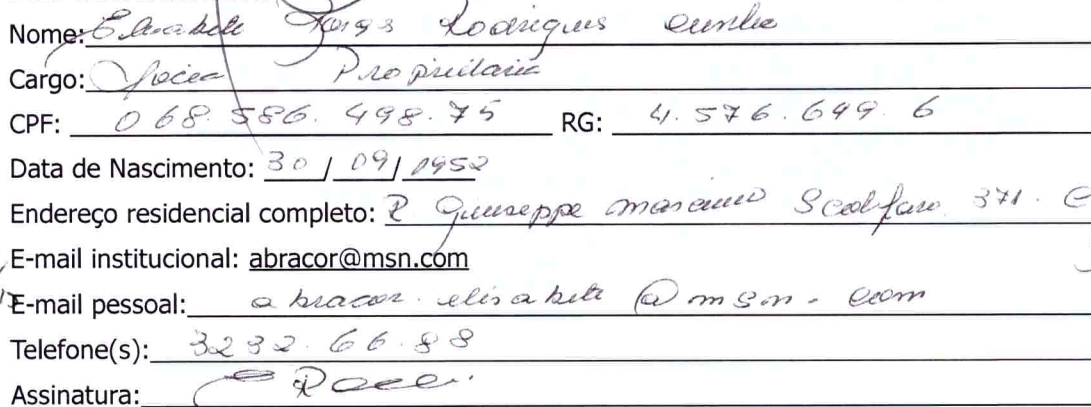 Nome: Elisabete Borges Rodrigues Cunha
Cargo: Socia Proprietaria
CPF: 068.586.498.75 RG: 4.576.649.6
Data de Nascimento: 30/09/1952
Endereço residencial completo: R Giuseppe Scolfaro 371.
E-mail institucional: abracor@msn.com
E-mail pessoal: abracor.elisabete@msn.com
Telefone(s): 3232.66.88
Assinatura: